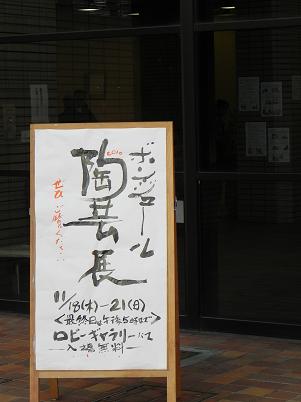 ボンジュール
2010
陶芸展
ぜひご覧ください…
11/18(木)-21(日)
<最終日は午後5時まで>
ロビーギャラリーにて
入場無料